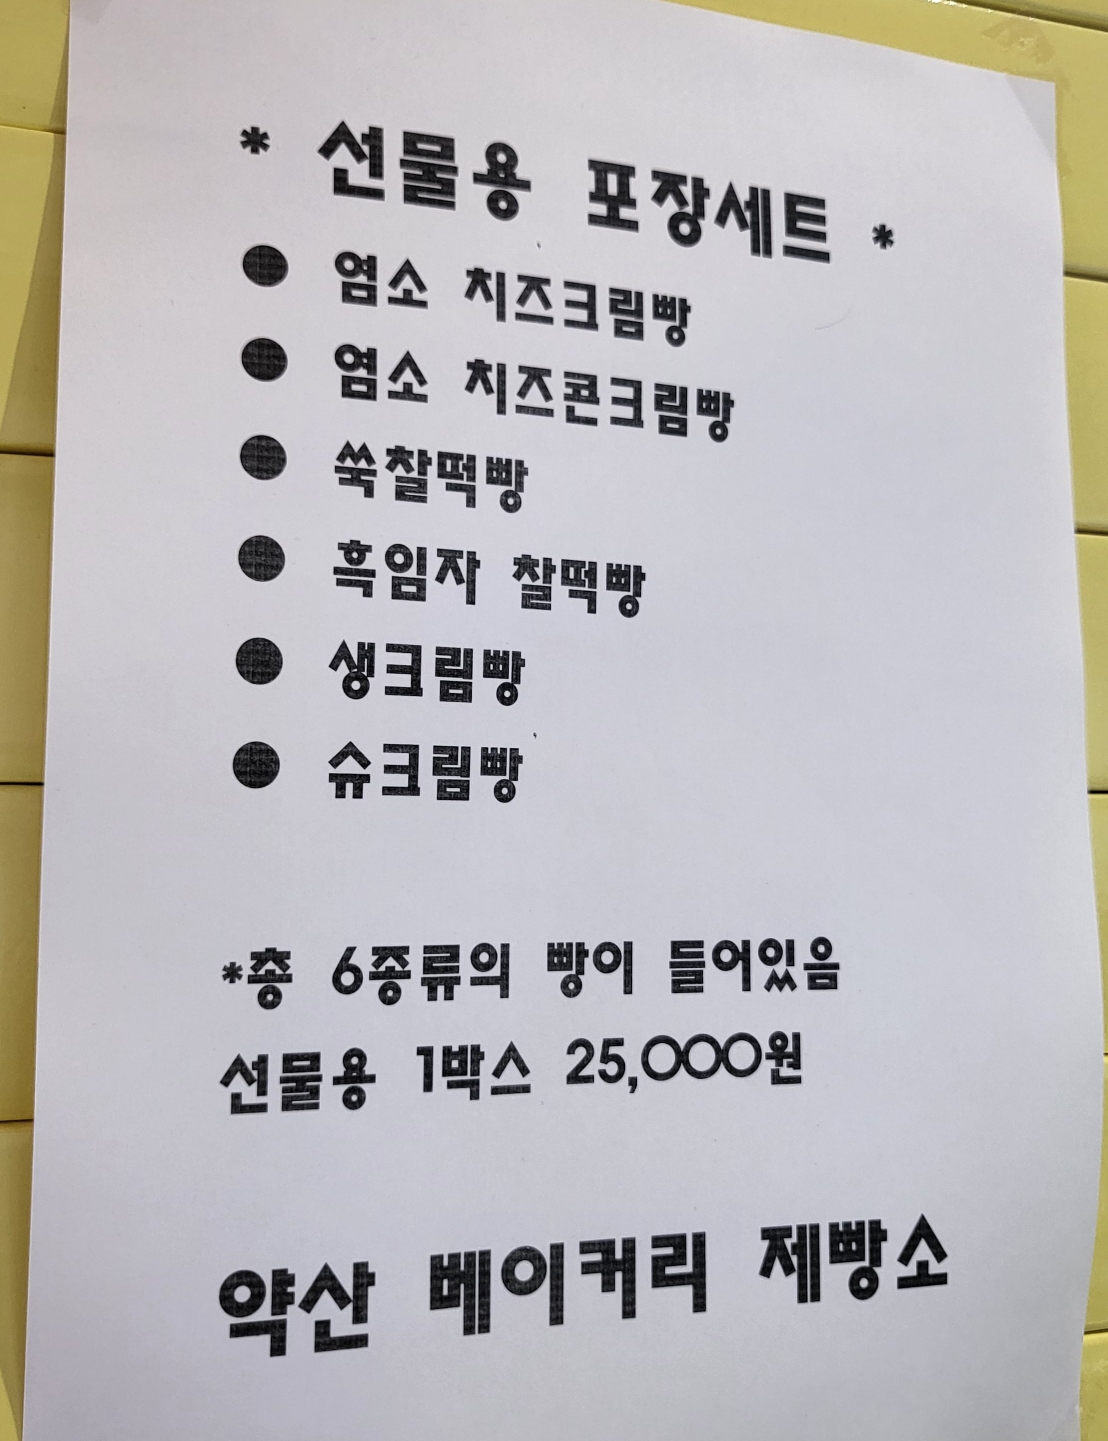 * 선물용 포장세트 *
● 염소 치즈크림빵
● 염소 치즈콘크림빵
● 쑥찰떡빵
● 흑임자 찰떡빵
● 생크림빵
● 슈크림빵
*총 6종류의 빵이 들어있음
선물용 1박스 25,000원
약산 베이커리 제빵소